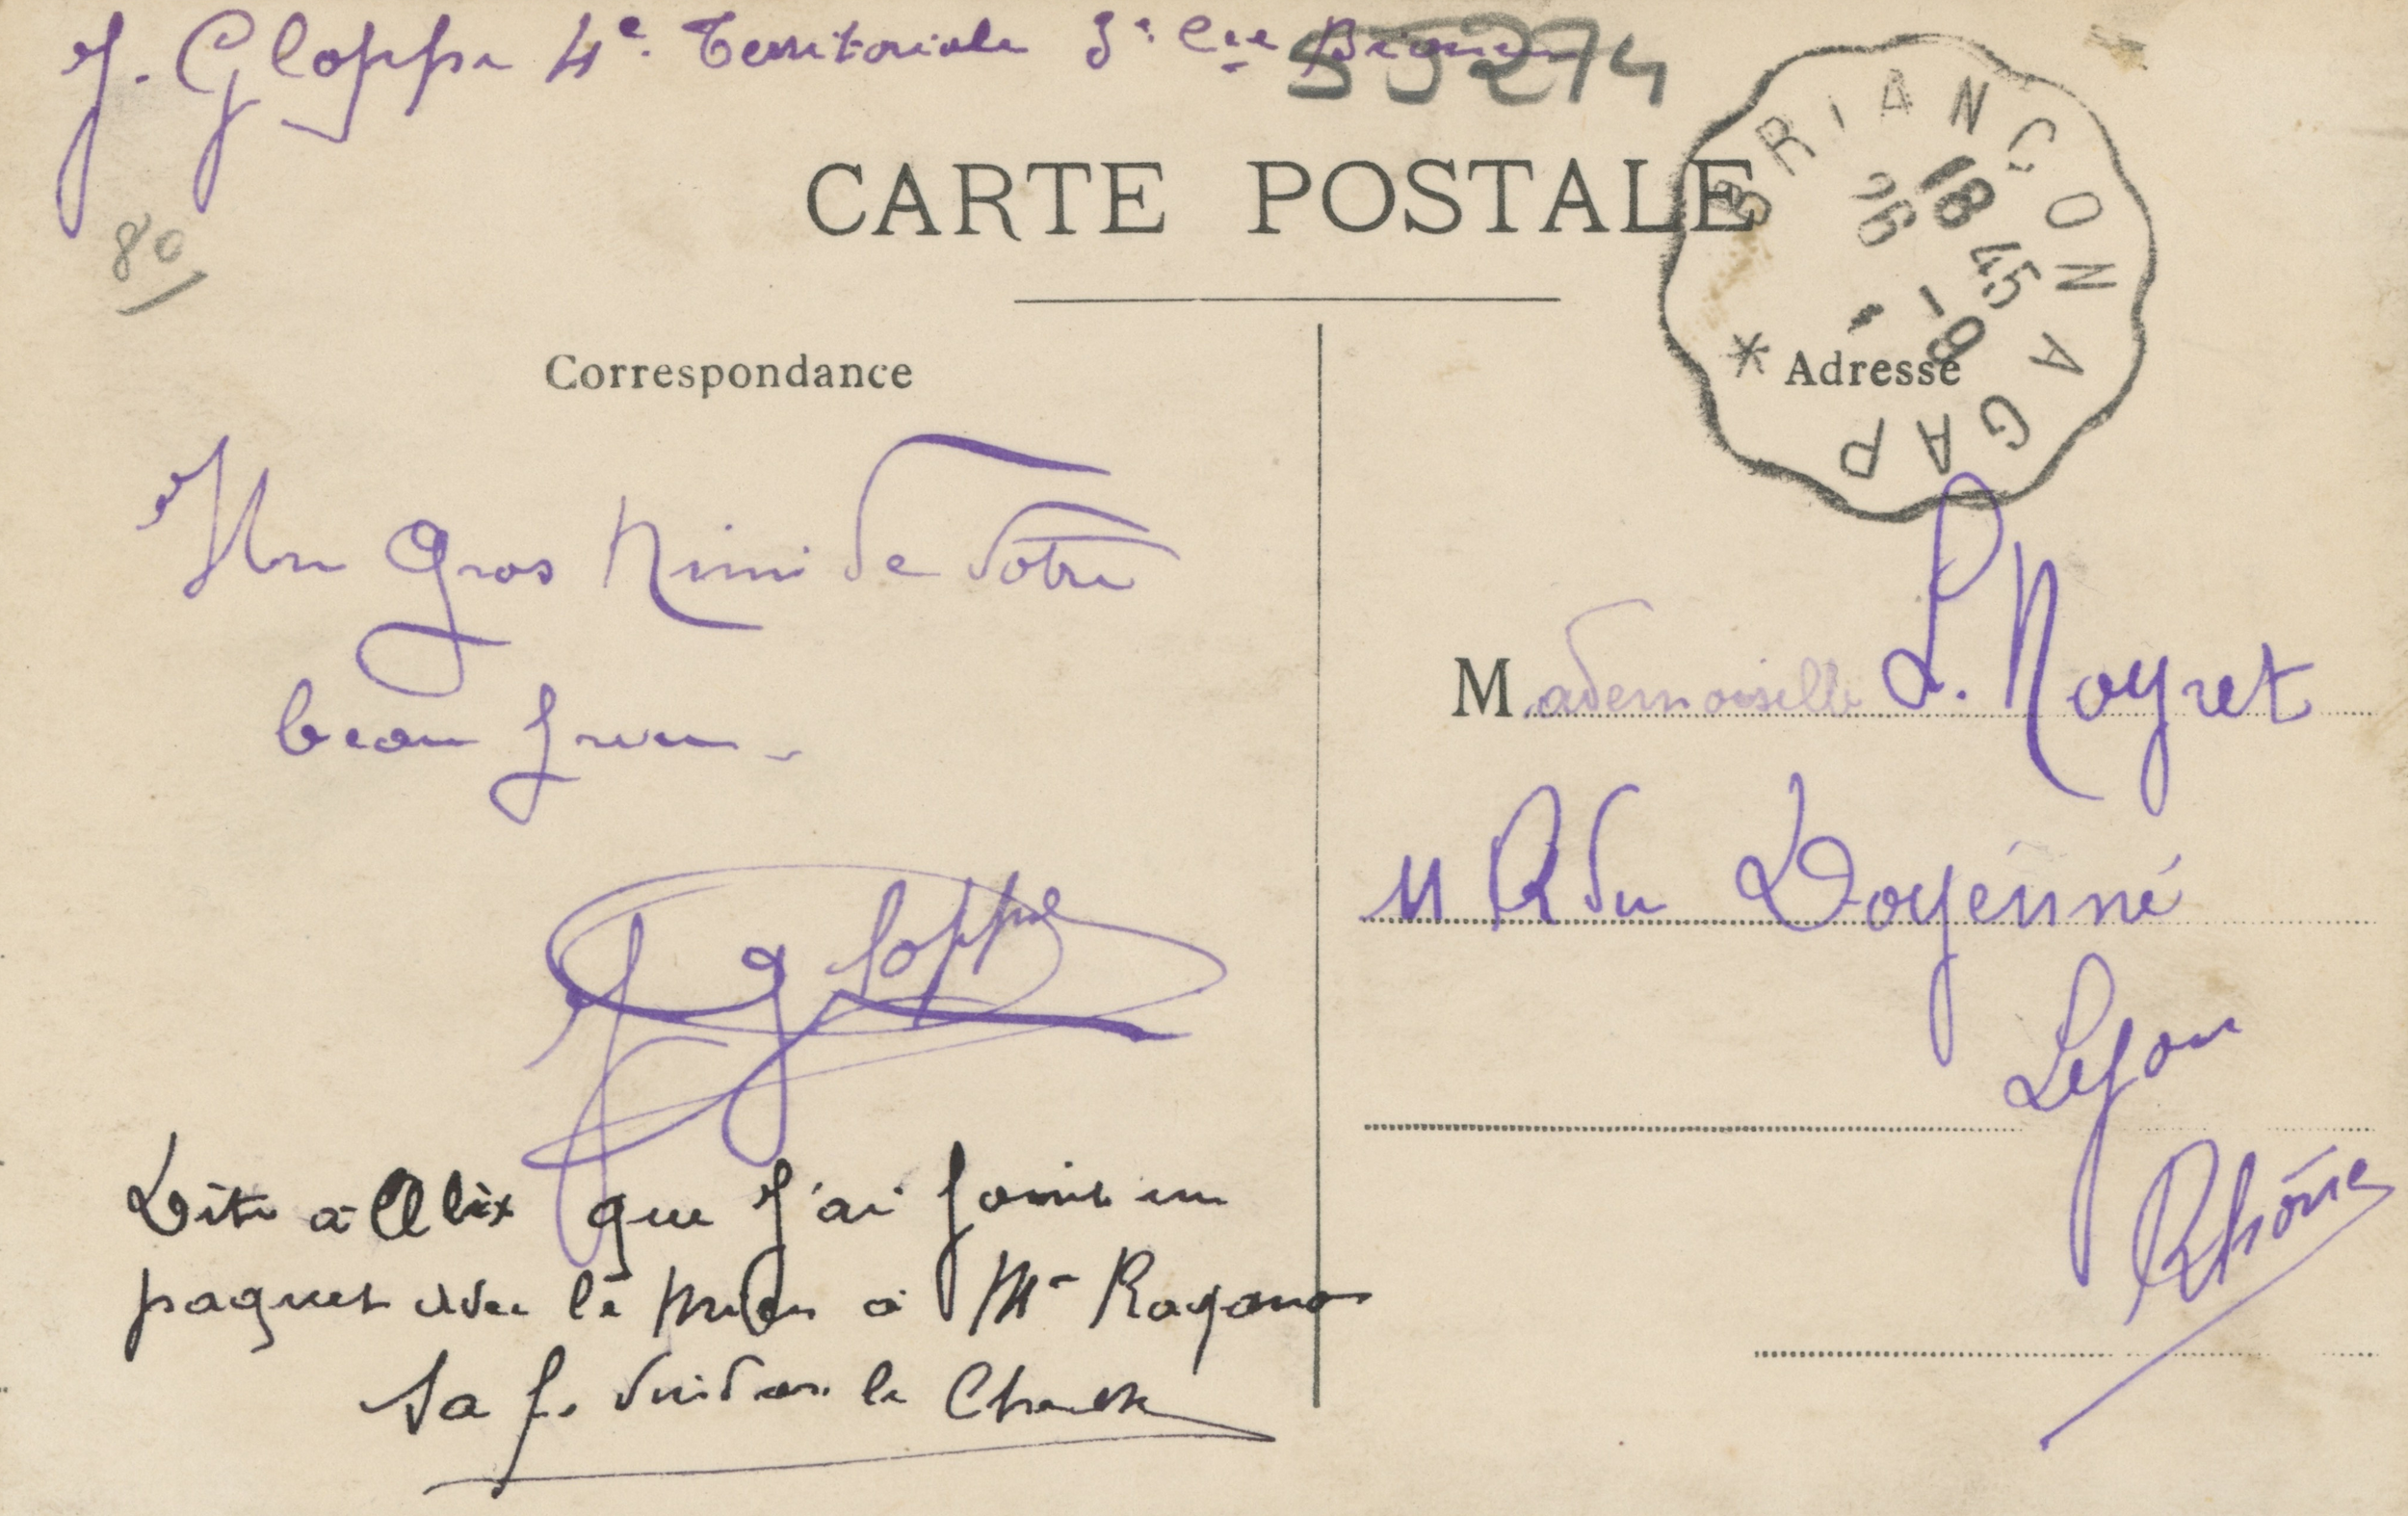 J. Gloppe 4e. Territoriale 3e. Cie Briançon
55274
80
CARTE POSTALE
BRIANÇON A GAP *
18 45
26 -9
Correspondance
Adresse
Un gros Mimi de Votre
beau frère -
J Gloppe
Dite à Alix que J'ai fourni un
paquet avec le à Mr
la
Mademoiselle L. Noyret
11 R du Doyénné
Lyon
Rhône